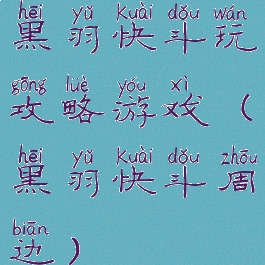 hēi yǔ kuài dǒu wán
黑羽快斗玩
gōng lüè yóu xì
攻略游戏（
hēi yǔ kuài dǒu zhōu
黑羽快斗周
biān
边）